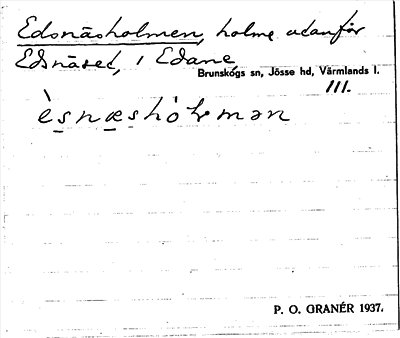 Edsnäsholmen, holme utanför
Edsnäset, i Edane
Brunskogs sn, Jösse hd, Värmlands l.
111.
è̱snæshó̱lmən
P. O. GRANÉR 1937.